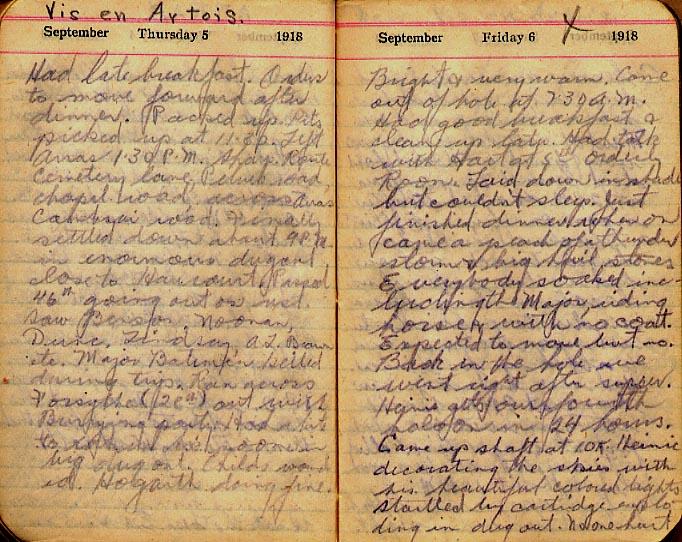 Vis en Artois.
September Thursday 5 1918
Had late breakfast. Orders
to move forward after
dinner. Packed up. Kits
picked up at 11.30. Left
Arras 1.30 P.M. Route
Cemetery lane, road,
chapel road, across Arras
Cambrai road. Finally
settled down about 9 P.M.
in enormous dugout
close to Haucourt. Passed
46th going out on rest.
Saw Benson, Noonan,
Dunc. Lindsay A.L. Brown
etc. Major killed
during trip. Ran across
Forsythe (20th) out with
Burying party. Had
to in
big dugout. Childs wound
ed. Hogarth doing fine.
September Friday 6 1918
Bright & very warm. Came
out of hole at 7.30 A.M.
Had good breakfast &
clean up later. Had talk
with at Orderly
Room. Laid down in shade
but couldn't sleep. Just
finished dinner when on
came a peach of a thunder
storm & big hail stones
Everybody soaked inc-
luding the Major, riding
horse with no coat.
Expected to move but no.
Back in the hole we
went right after supper.
Heinie gets our fourth
baloon in 24 hours.
Came up shaft at 10K. Heinie
decorating the skies with
his beautiful colored lights
startled by cartridge explo
ding in dug out. No one hurt